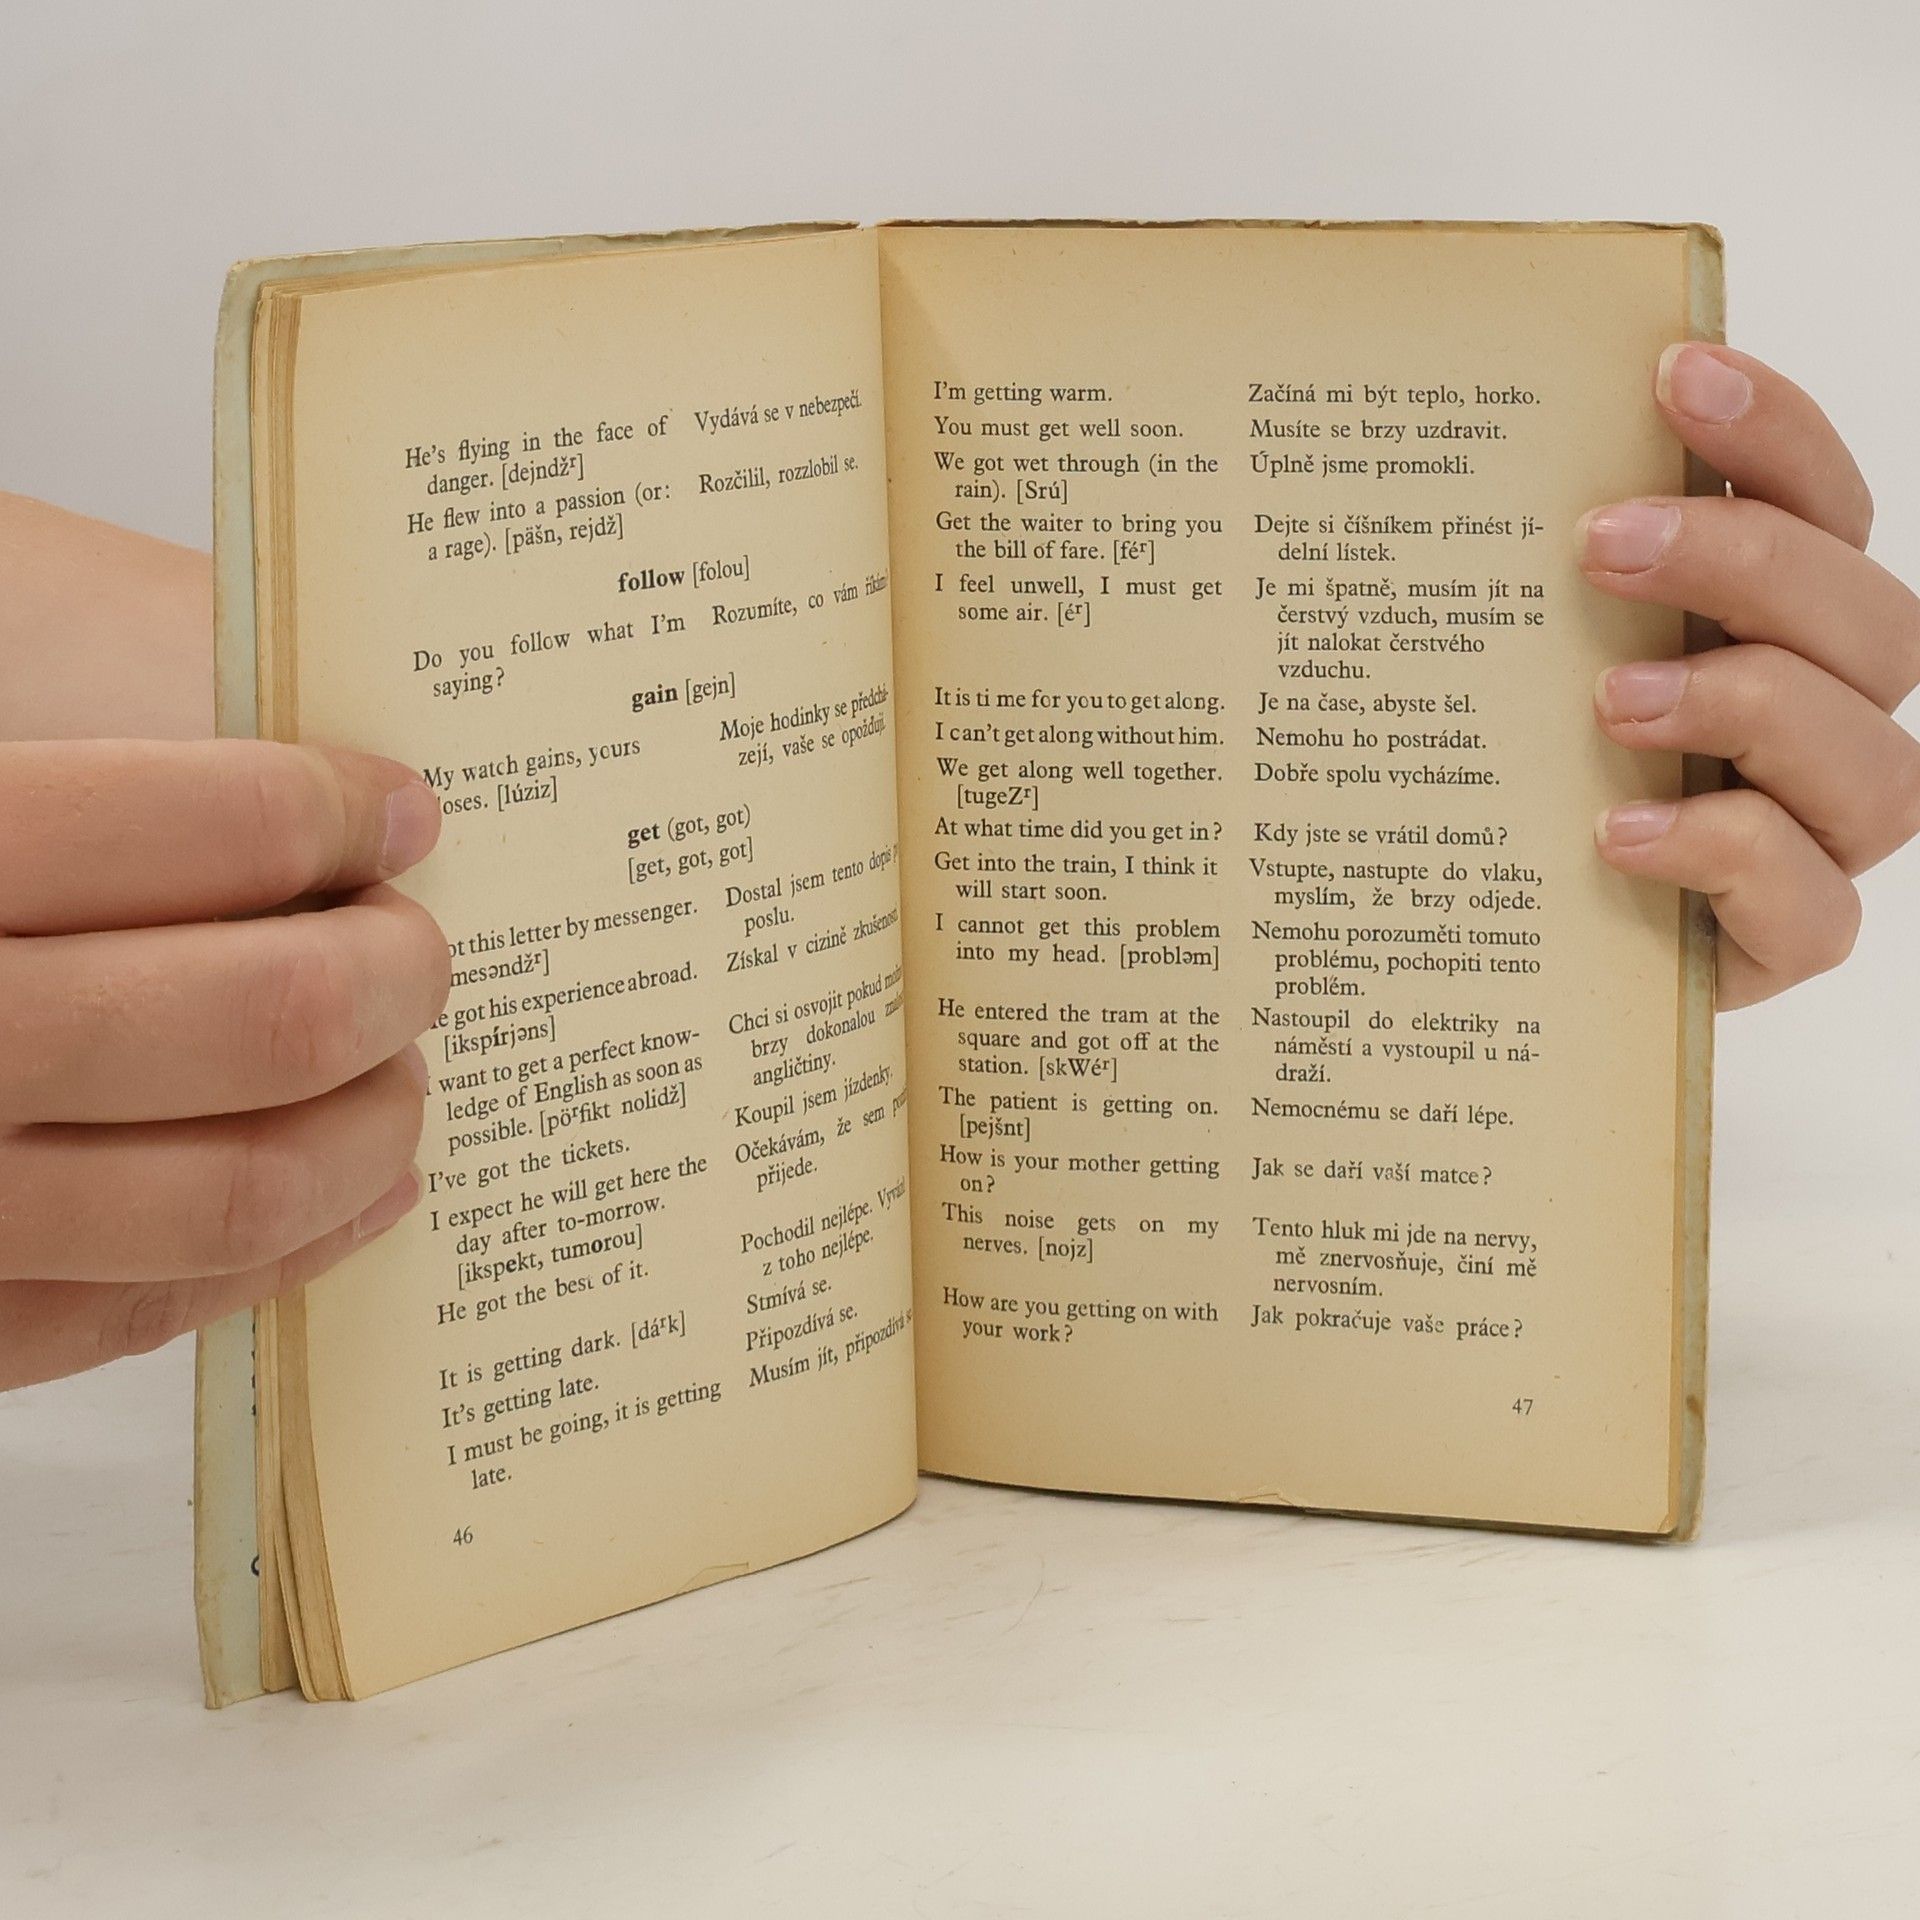 He's flying in the face of
danger. [dejndžʳ]
Vydává se v nebezpečí.
He flew into a passion (or:
a rage). [päšn, rejdž]
Rozčilil, rozzlobil se.
follow [folou]
Do you follow what I'm
saying?
Rozumíte, co vám
gain [gejn]
My watch gains, yours
loses. [lúziz]
Moje hodinky se předchá-
zejí, vaše se opožďují.
get (got, got)
[get, got, got]
this letter by messenger.
[mesəndžʳ]
Dostal jsem tento dopis
poslu.
got his experience abroad.
[ikspírjəns]
Získal v cizině
I want to get a perfect know-
ledge of English as soon as
possible. [pöʳfikt nolidž]
Chci si osvojit pokud
brzy dokonalou
angličtiny.
I've got the tickets.
Koupil jsem jízdenky.
I expect he will get here the
day after to-morrow.
[ikspekt, tumorou]
Očekávám, že sem
přijede.
He got the best of it.
Pochodil nejlépe.
z toho nejlépe.
It is getting dark. [dáʳk]
Stmívá se.
It's getting late.
Připozdívá se.
I must be going, it is getting
late.
Musím jít, připozdívá se.
46
I'm getting warm.
Začíná mi být teplo, horko.
You must get well soon.
Musíte se brzy uzdravit.
We got wet through (in the
rain). [Srú]
Úplně jsme promokli.
Get the waiter to bring you
the bill of fare. [féʳ]
Dejte si číšníkem přinést jí-
delní lístek.
I feel unwell, I must get
some air. [éʳ]
Je mi špatně, musím jít na
čerstvý vzduch, musím se
jít nalokat čerstvého
vzduchu.
It is ti me for you to get along.
Je na čase, abyste šel.
I can't get along without him.
Nemohu ho postrádat.
We get along well together.
[tugeZʳ]
Dobře spolu vycházíme.
At what time did you get in?
Kdy jste se vrátil domů?
Get into the train, I think it
will start soon.
Vstupte, nastupte do vlaku,
myslím, že brzy odjede.
I cannot get this problem
into my head. [probləm]
Nemohu porozuměti tomuto
problému, pochopiti tento
problém.
He entered the tram at the
square and got off at the
station. [skWéʳ]
Nastoupil do elektriky na
náměstí a vystoupil u ná-
draží.
The patient is getting on.
[pejšnt]
Nemocnému se daří lépe.
How is your mother getting
on?
Jak se daří vaší matce?
This noise gets on my
nerves. [nojz]
Tento hluk mi jde na nervy,
mě znervosňuje, činí mě
nervosním.
How are you getting on with
your work?
Jak pokračuje vaše práce?
47